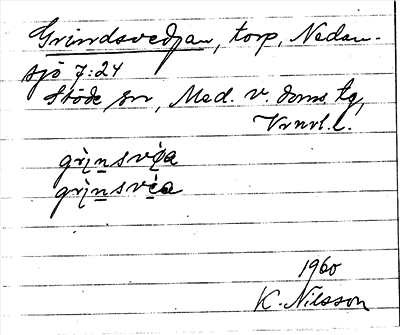 Grindsvedjan, torp, Nedan-
sjö 7:24
Stöde sn, Med. v. doms tg,
Vrnrl. l.
gri̠n̠svẹa
gri̠n̠svẹa
1960
K. Nilsson